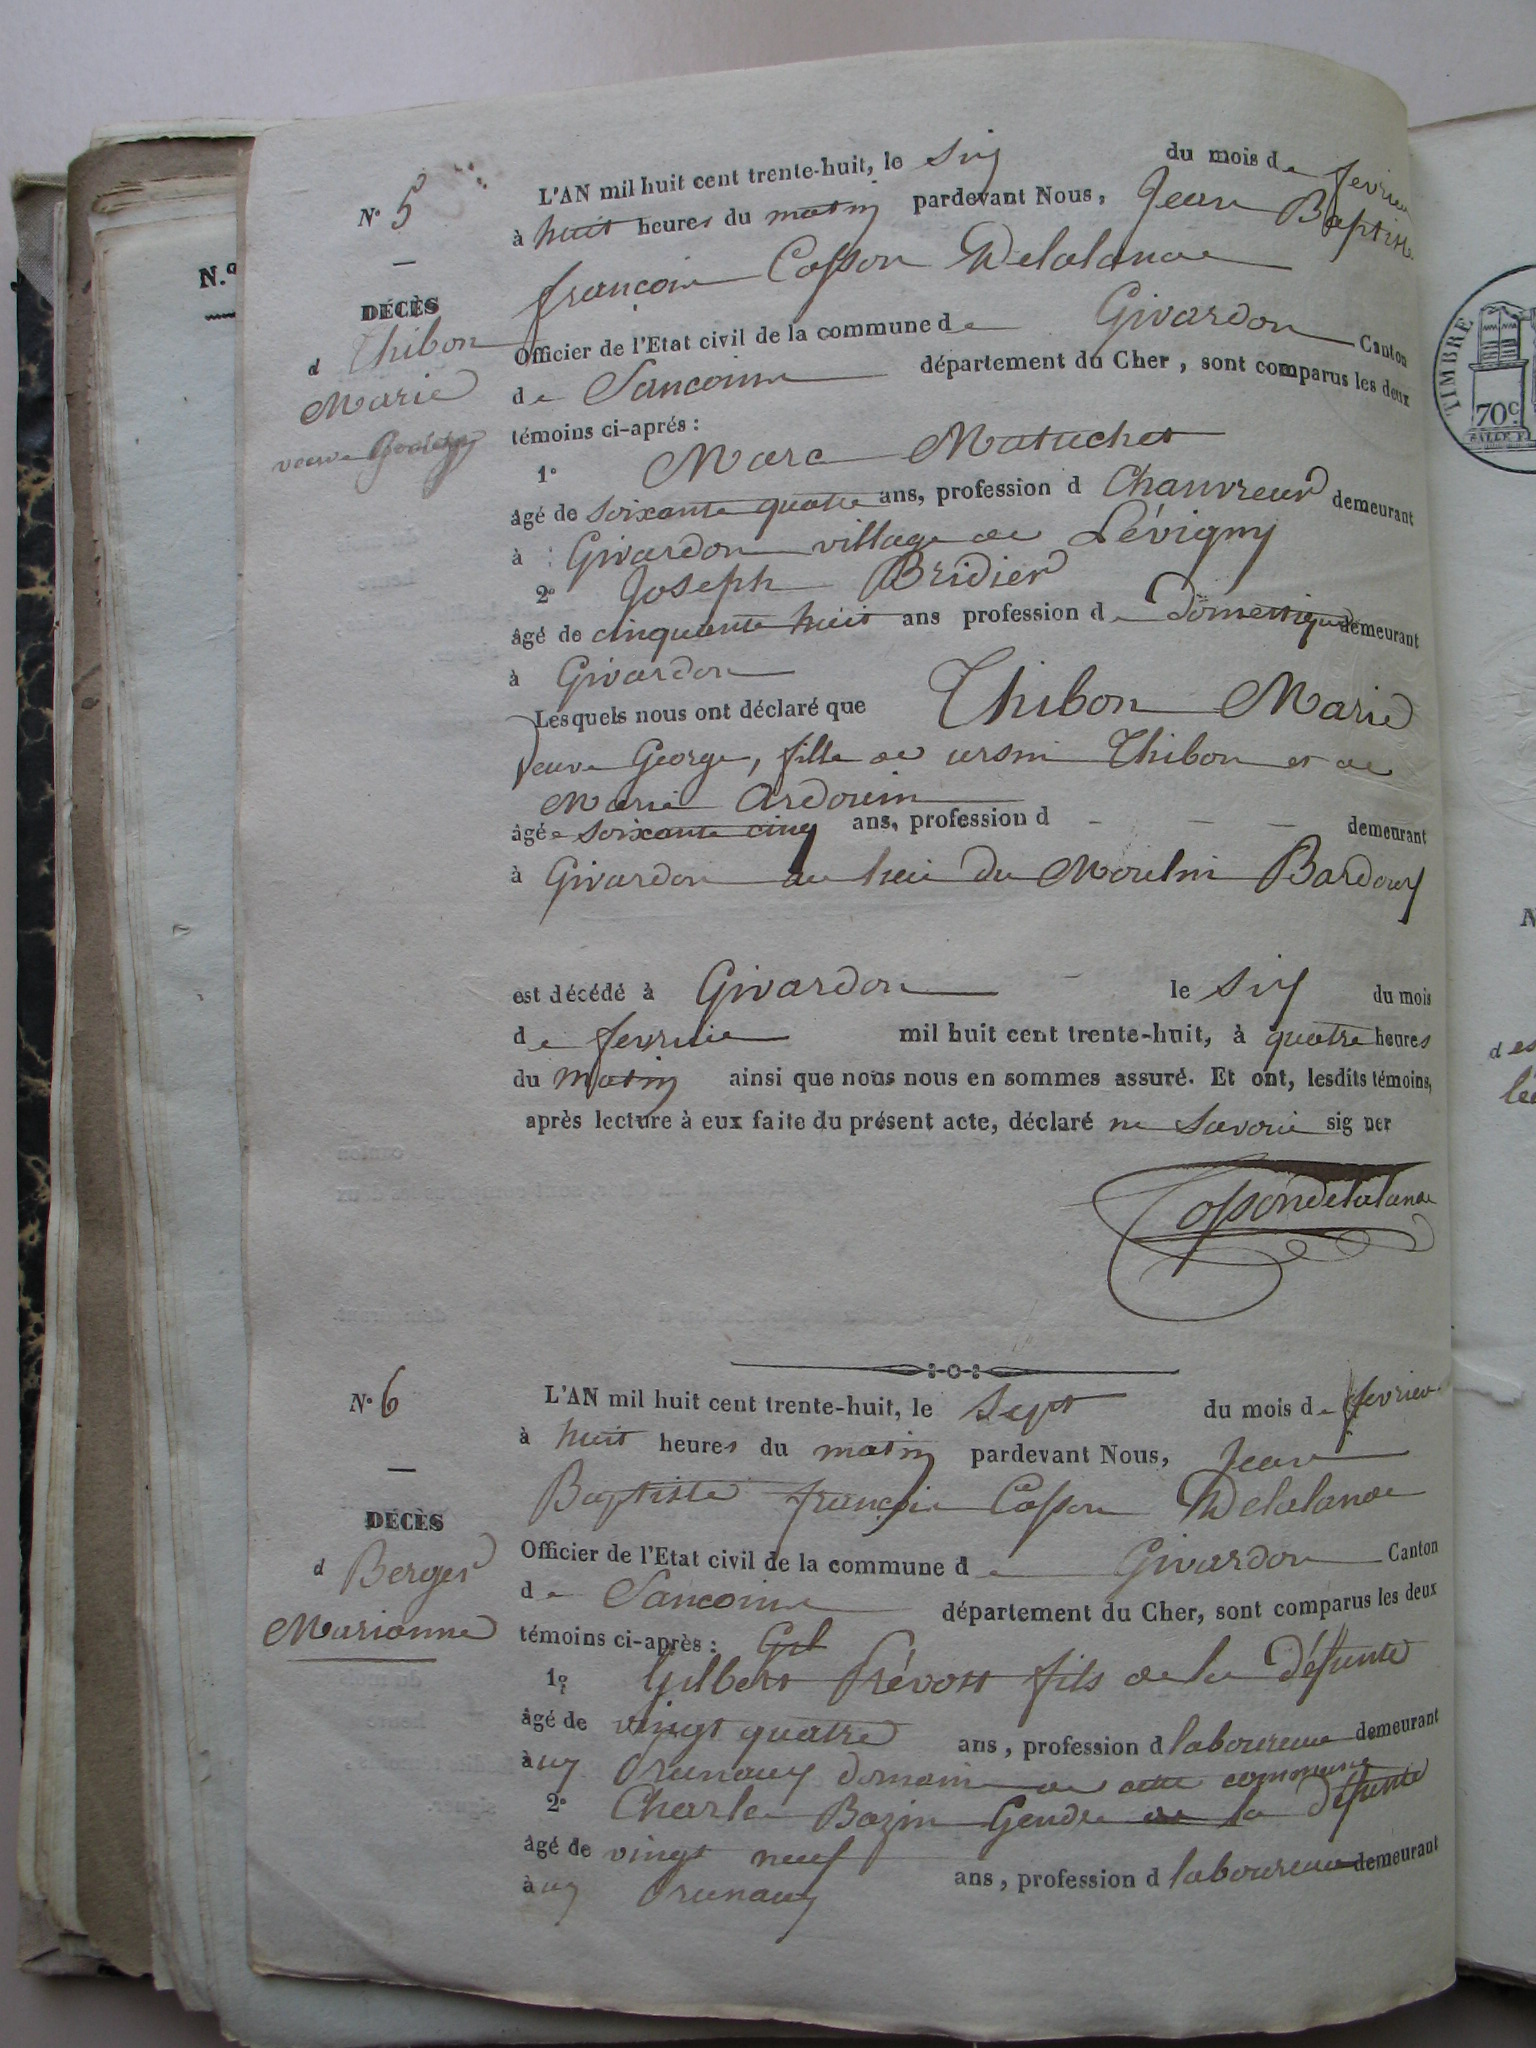 N° 5
DÉCÈS
d Thibon
Marie
veuve
L'AN mil huit cent trente-huit, le six du mois de fevrier
à huit heures du matin pardevant Nous, Jean Baptiste
françois Cosson Delalande
Officier de l'Etat civil de la commune de Givardon Canton
de Sancoins département du Cher, sont comparus les deux
témoins ci-aprés :
1° Marc Matuchet
âgé de soixante quatre ans, profession d Chanvreur demeurant
à Givardon village de Lévigny
2° Joseph Bridier
âgé de cinquante huit ans profession de Domestique demeurant
à Givardon
Lesquels nous ont déclaré que Thibon Marie
Veuve George, fille de ursin Thibon et de
Marie Ardouin
âgée soixante cinq ans, profession d — — — demeurant
à Givardon au lieu du Moulin Bardoux
est décédé à Givardon le six du mois
de fevrier mil huit cent trente-huit, à quatre heures
du matin ainsi que nous nous en sommes assuré. Et ont, lesdits témoins,
après lecture à eux faite du présent acte, déclaré ne savoir signer
Cossondelalande
N° 6
DÉCÈS
d Berger
Marianne
L'AN mil huit cent trente-huit, le sept du mois de fevrier
à huit heures du matin pardevant Nous, Jean
Baptiste françois Cosson Delalande
Officier de l'Etat civil de la commune de Givardon Canton
de Sancoins département du Cher, sont comparus les deux
témoins ci-après : Gil
1° Gilbert Prévost fils de la défunte
âgé de vingt quatre ans, profession d laboureur demeurant
àux domaine de cette commune
2° Charle Bazin Gendre de la défunte
âgé de vingt neuf ans, profession d laboureur demeurant
àux
N.°
TIMBRE
70c